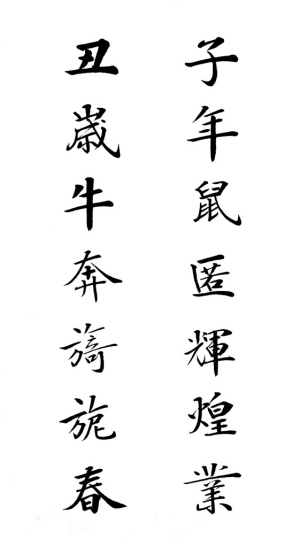 子年鼠匿輝煌業
丑歳牛奔旖旎春